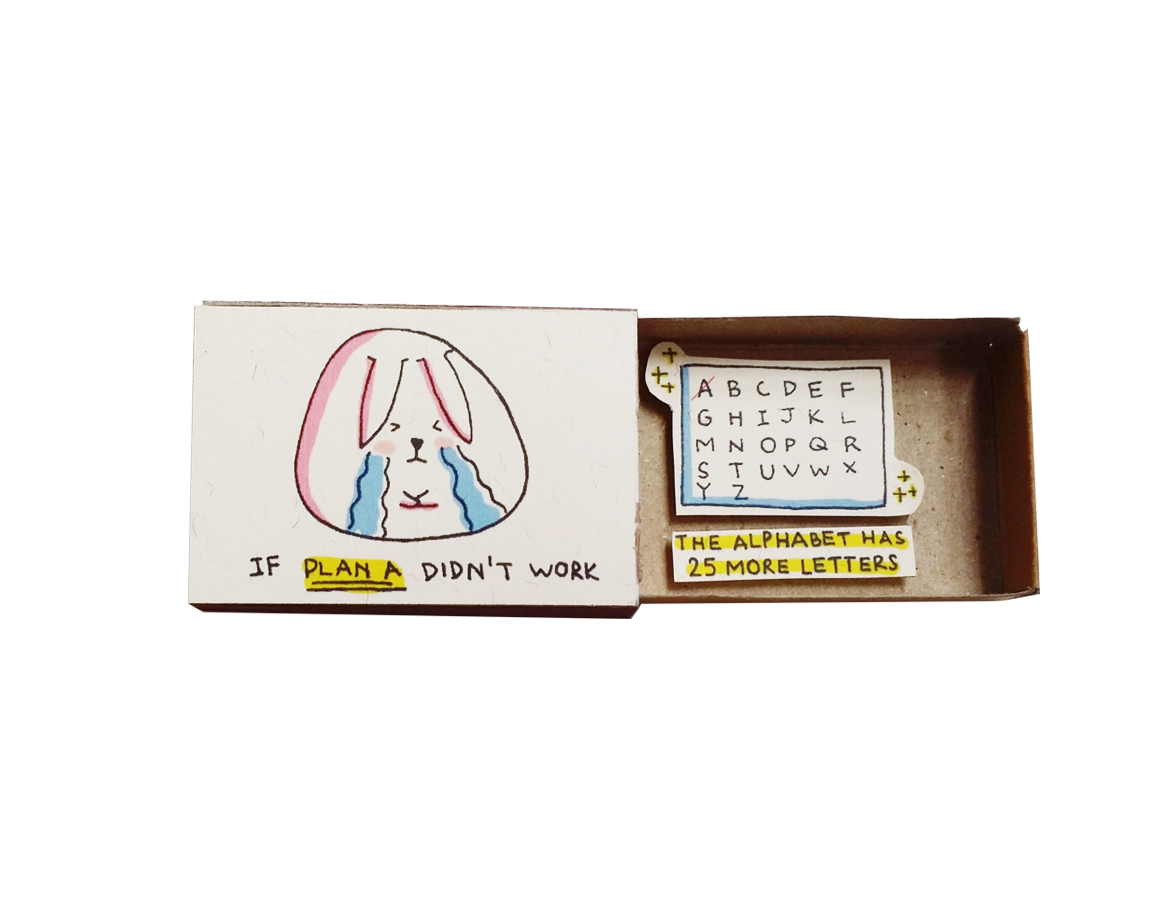 IF PLAN A DIDN'T WORK
A B C D E F
G H I J K L
M N O P Q R
S T U V W X
Y Z
THE ALPHABET HAS
25 MORE LETTERS